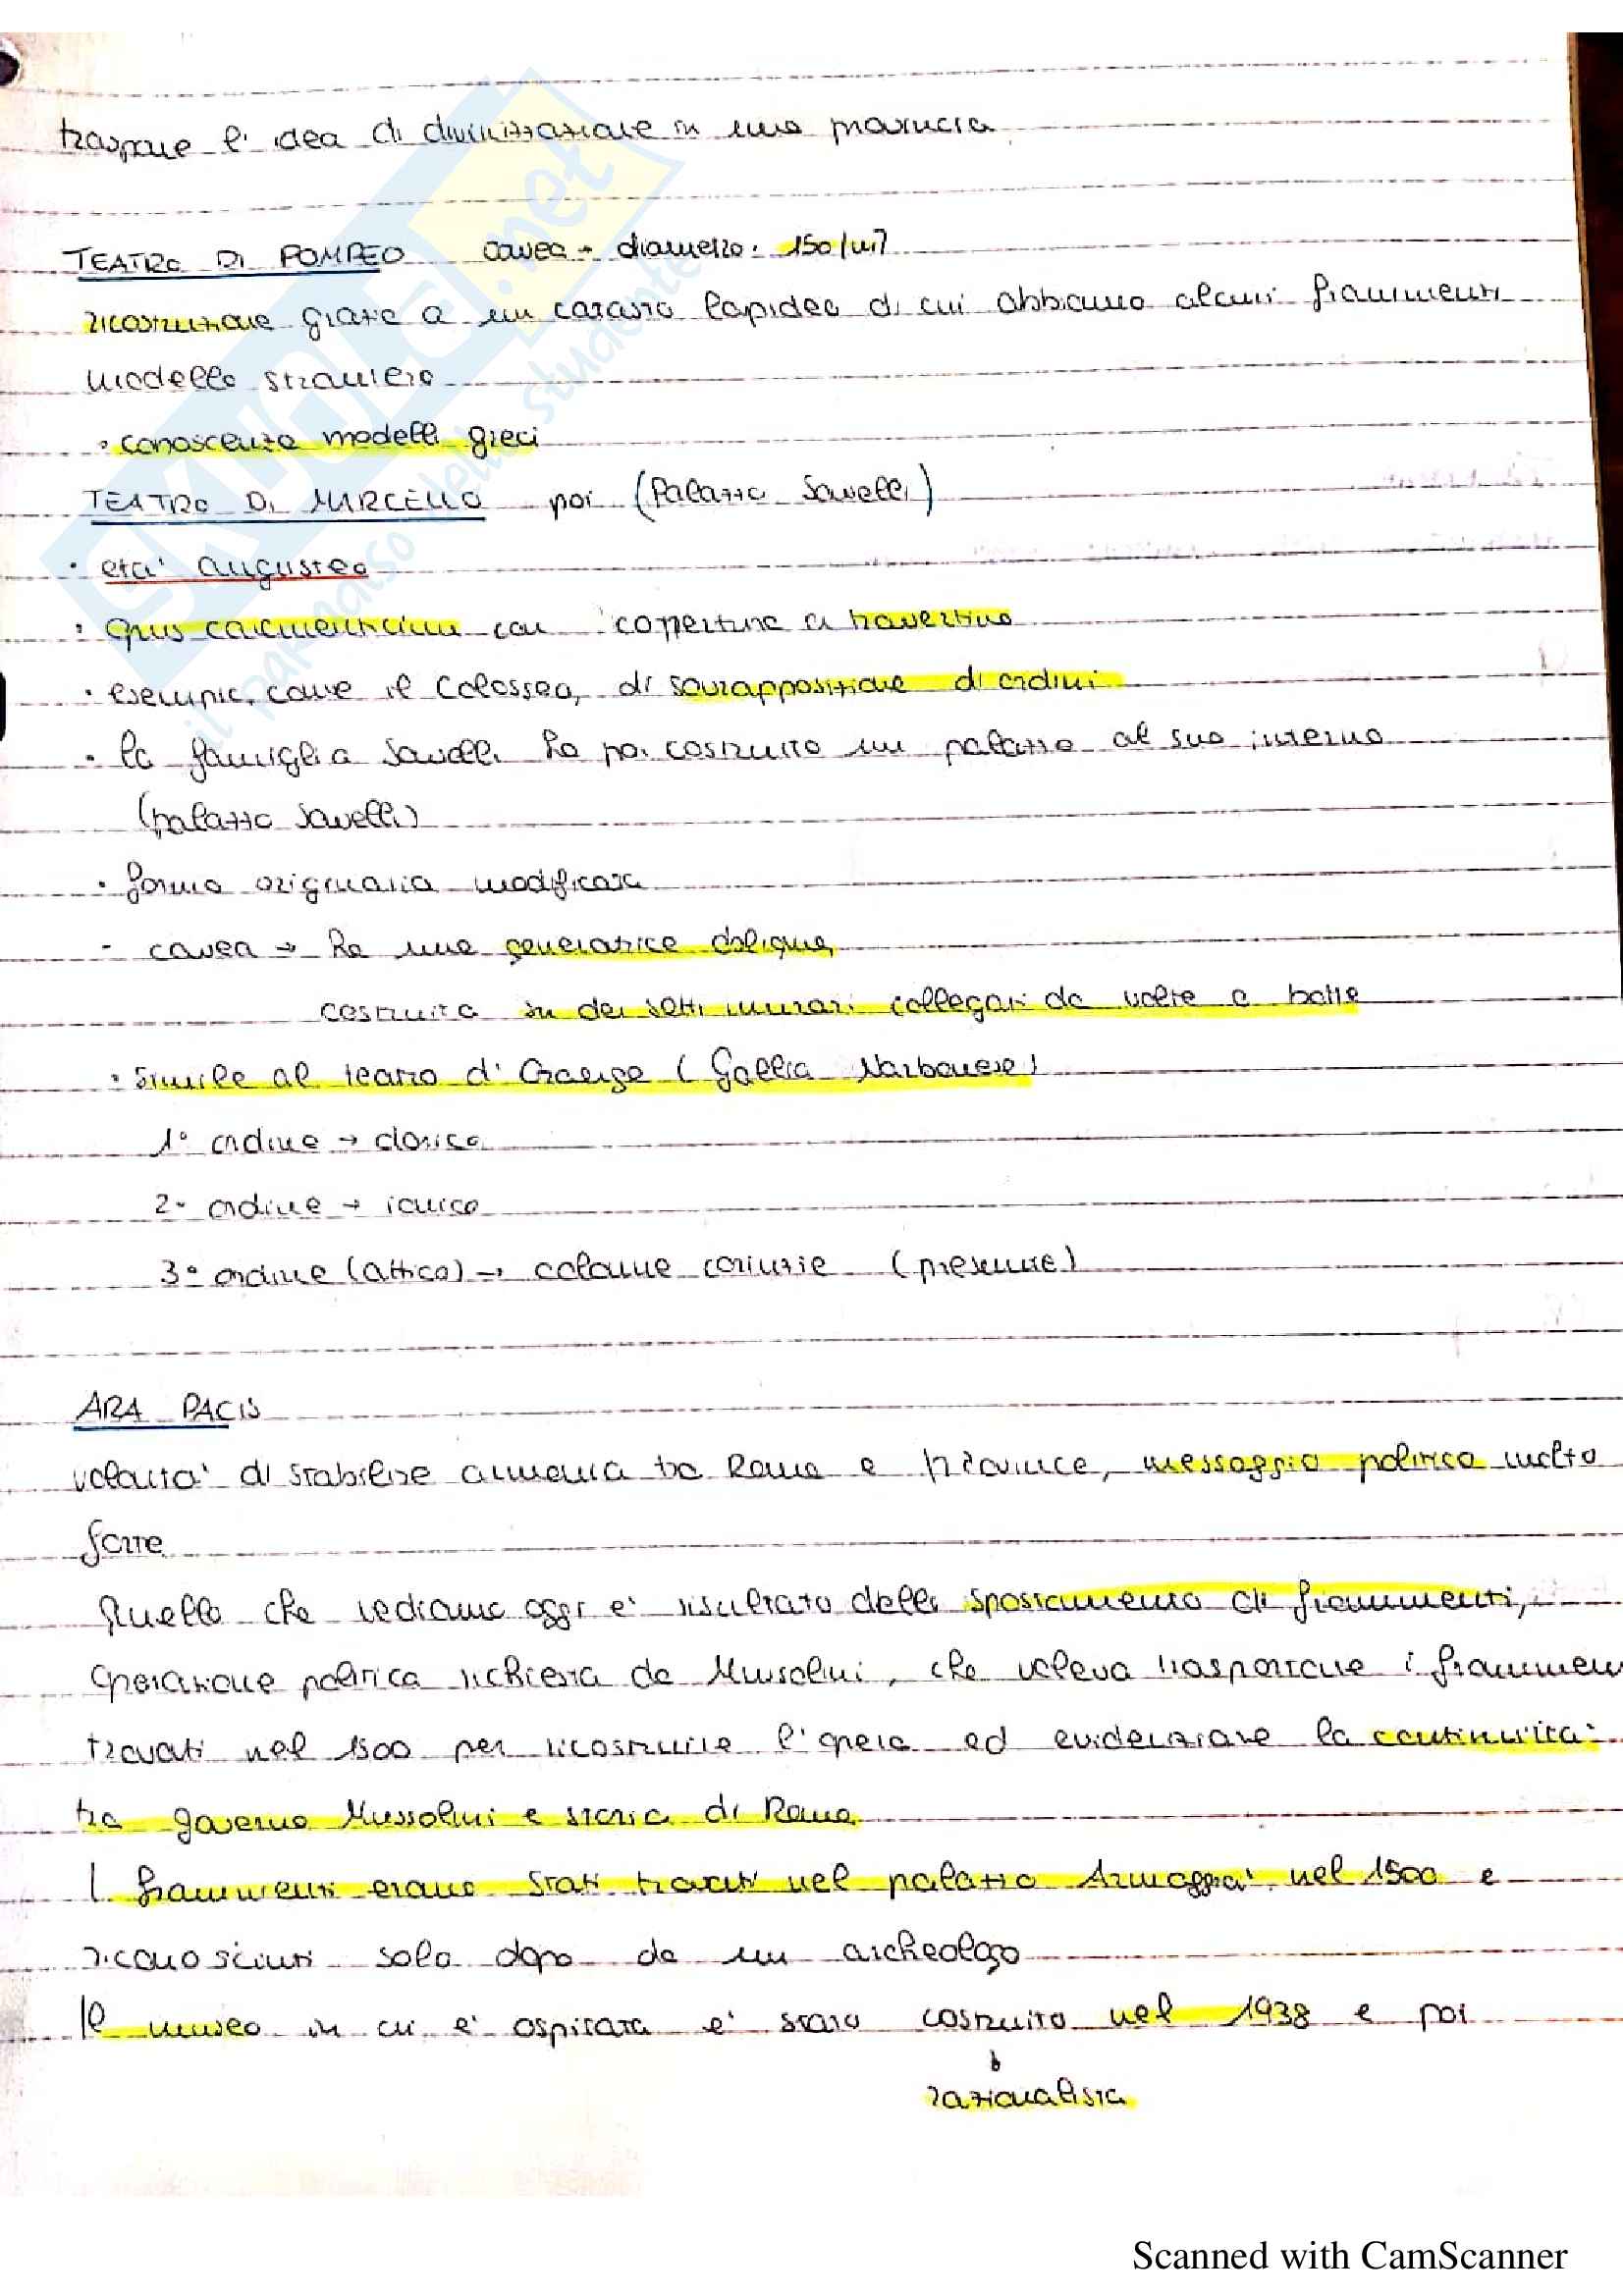 traspare l'idea di divinizzazione in una provincia
TEATRO DI POMPEO cavea → diametro: 150/m?
ricostruzione grazie a un catasto lapideo di cui abbiamo alcuni frammenti
modello straniero
• conoscenza modelli greci
TEATRO DI MARCELLO poi (Palazzo Savelli)
• eta' augustea
• opus caementicium con copertura a travertino
• esempio, come il Colosseo, di sovrapposizione di ordini
• la famiglia Savelli ha poi costruito un palazzo al suo interno
(palazzo Savelli)
• forma originaria modificata
- cavea → ha una generatrice obliqua,
costruita su dei setti murari collegati da volte a botte
• simile al teatro d'Orange (Gallia Narbonese)
1° ordine → dorico
2° ordine → ionico
3° ordine (attico) → colonne corinzie (presunte)
ARA PACIS
volonta' di stabilire armonia tra Roma e province, messaggio politico molto
forte
Quello che vediamo oggi e' risultato dello spostamento di frammenti,
operazione politica richiesta da Mussolini, che voleva trasportare i frammen
trovati nel 1500 per ricostruire l'opera ed evidenziare la continuita'
tra governo Mussolini e storia di Roma
I frammenti erano stati trovati nel palazzo nel 1500 e
riconosciuti solo dopo da un archeologo
Il museo in cui e' ospitata e' stato costruito nel 1938 e poi
razionalista
SKUOLA.net
il paradiso dello studente
Scanned with CamScanner